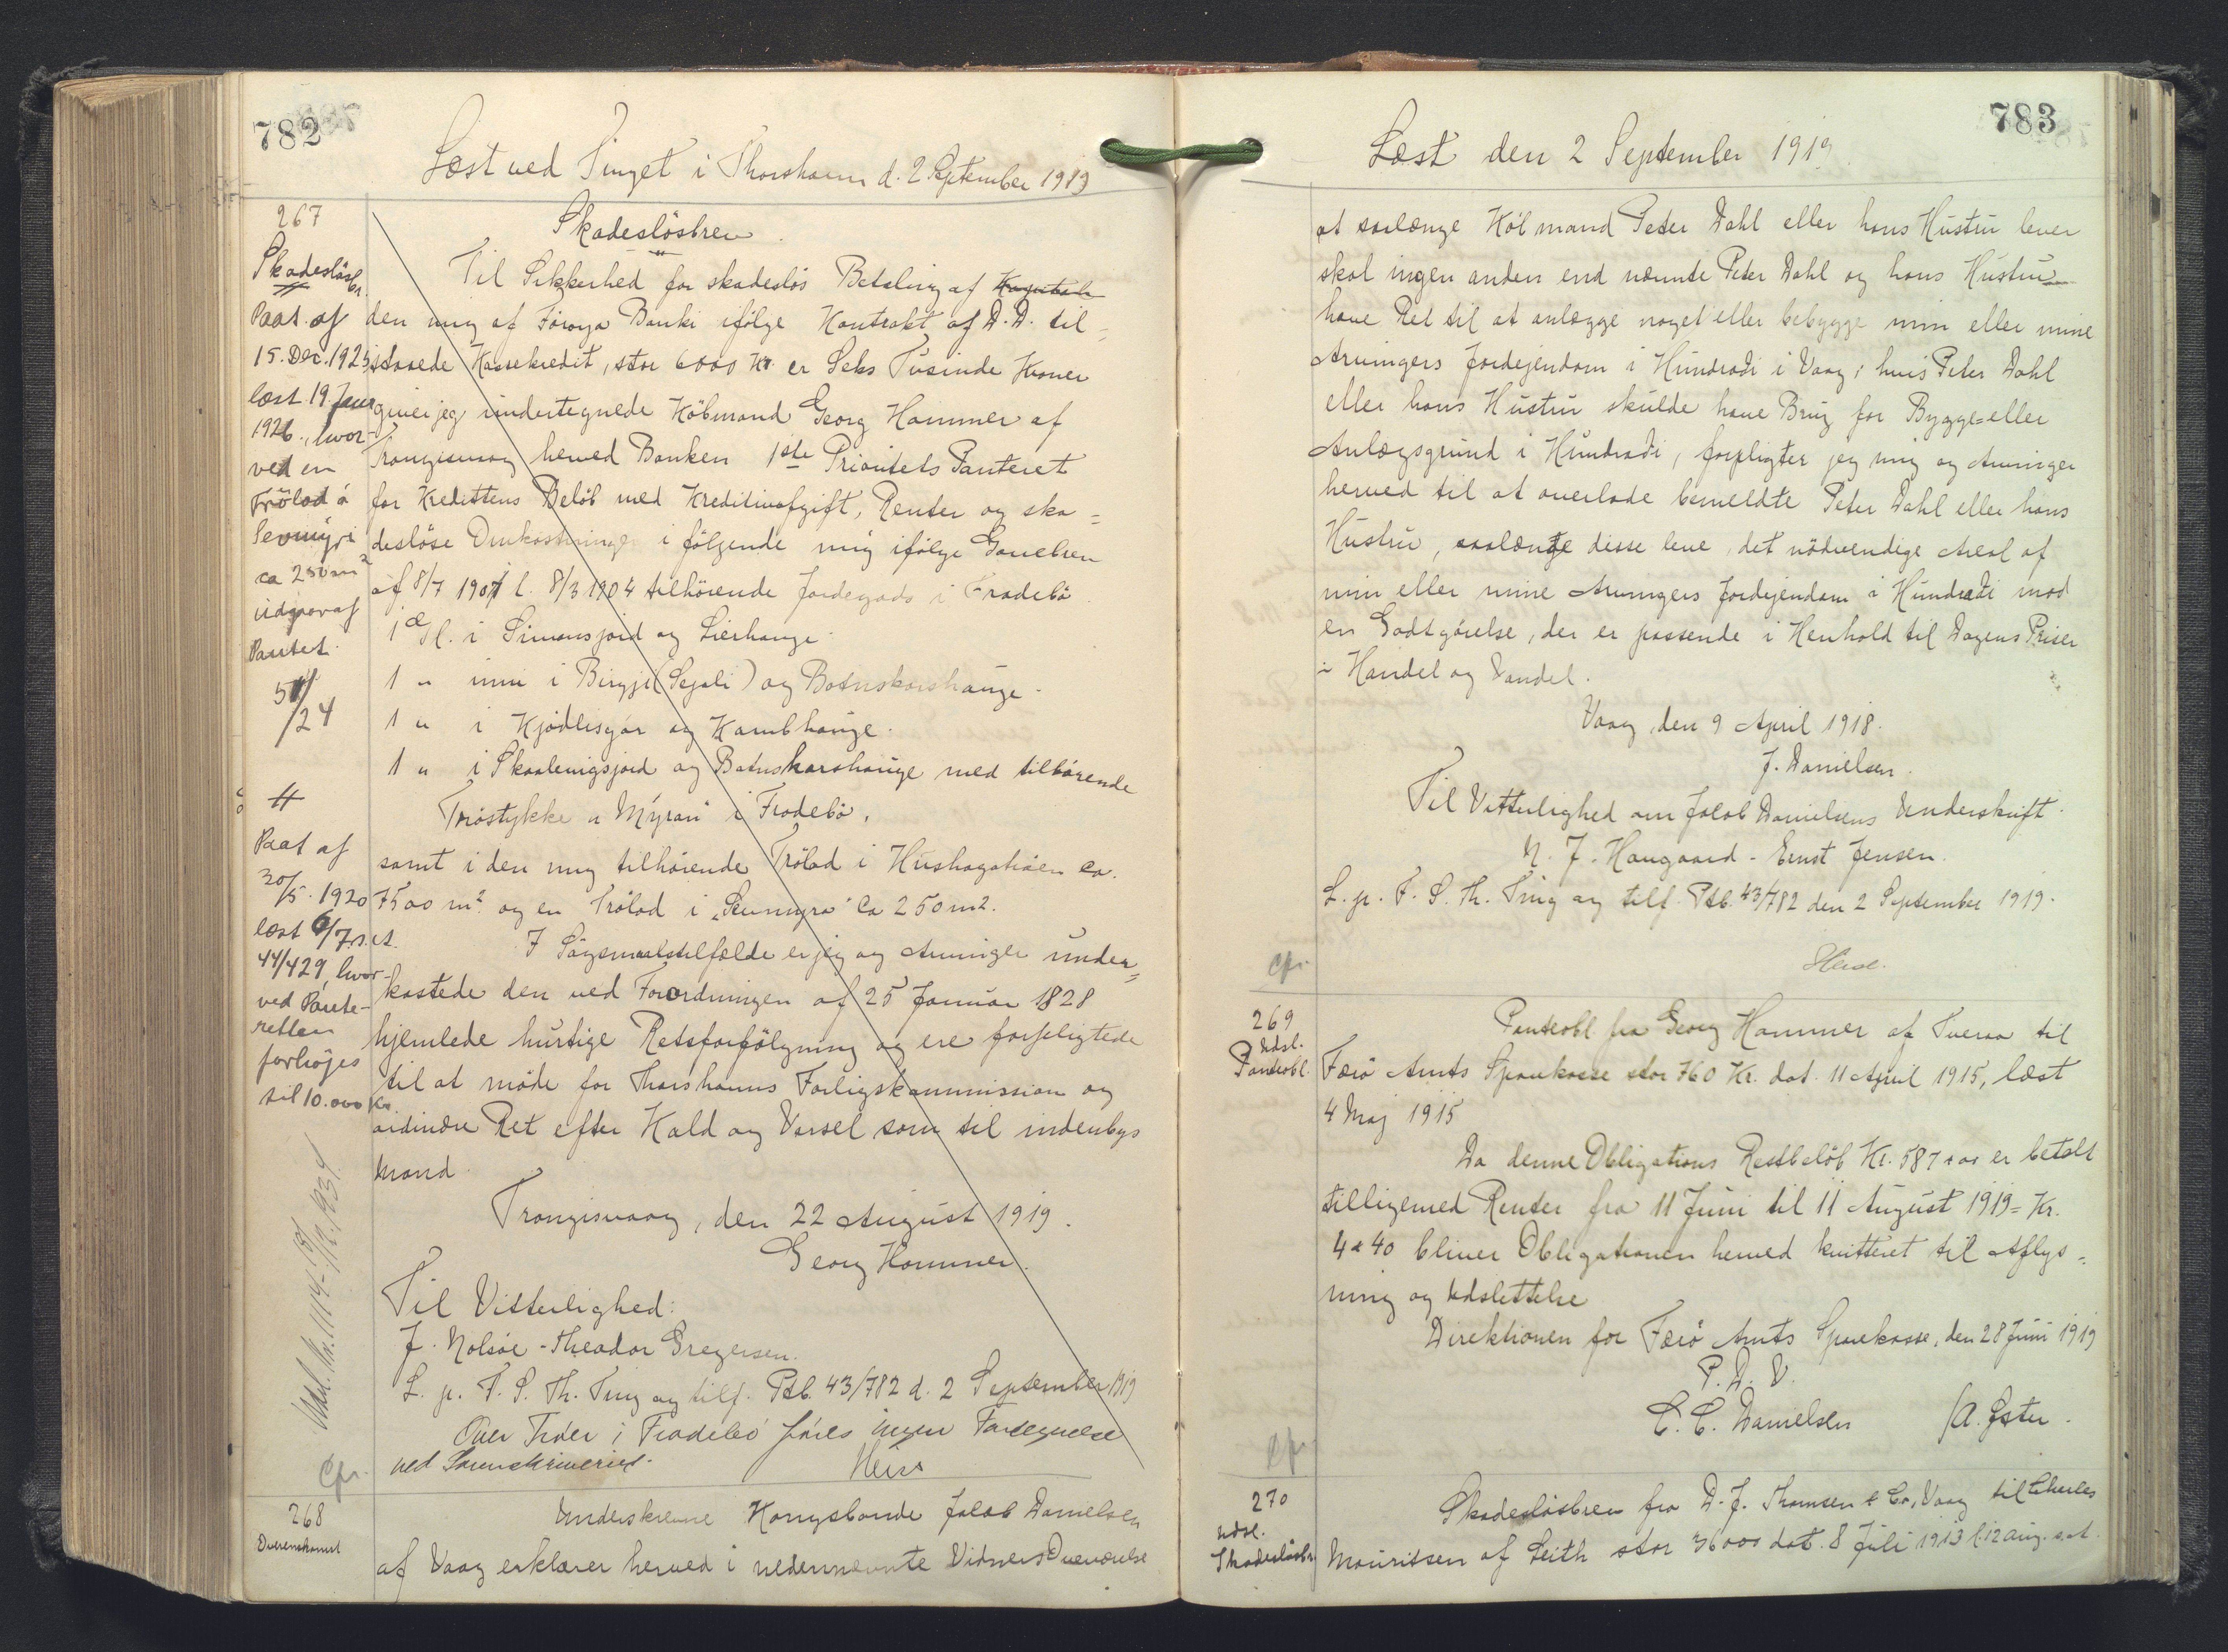 782
Læst ved Tinget i Thorshavn d. 2 September 1919
267
Skadesløsbr.
Paat. af
15. Dec. 1925
læst 19. Januar
1926, hvor-
ved en
Trölad á
Sevmýri
ca 250 m²
udgaar af
Pantet.
51/24
#
Paat af
20/5. 1920
læst 6/7 s.A.
44/429, hvor-
ved Pante-
retten
forhøjes
til 10.000 Kr.
Udsl. Nr. 1114 - 1934
Skadesløsbrev
Til Sikkerhed for skadesløs Betaling af
den mig af Föroya Banki ifölge Kontrakt af D.D. til-
staaede Kassekredit, stor 6000 Kr. er Seks Tusinde Kroner
giver jeg undertegnede Köbmand Georg Hammer af
Trangisvaag herved Banken 1ste Prioritets Panteret
for Kredittens Beløb med Kreditivafgift, Renter og ska=
deslöse Omkostninger i fölgende mig ifölge Gavebrev
af 8/7 1901 l. 8/3 1904 tilhörende Jordegods i Frodebö
1 Gl. i Simunsjord og Lierhauge.
1 " inni i Birgji (Sejali) og Botnskarshauge.
1 " i Kjödlisgar og Kambhauge.
1 " i Skaalevigsjord og Botnskarshauge med tilhörende
Tröstykke " Myran" i Frodebö,
samt i den mig tilhörende Trölad i Hushagahöen ca.
7500 m² og en Trölad i "Seumyra" ca 250 m2.
I Sögsmaalstilfælde er jeg og Arvinger under=
kastede den ved Forordningen af 25 Januar 1828
hjemlede hurtige Retsforfölgning og ere forpligtede
til at möde for Thorshavns Forligskommission og
ordinære Ret efter Kald og Varsel som til indenbys
Mand.
Trangisvaag, den 22 August 1919.
Georg Hammer.
Til Vitterlighed:
J. Nolsöe - Theodor Gregersen.
L. p. F. S. Th. Ting og tilf. Ptb. 43/782 d. 2 September 1919
Over Tröer i Frodebö föres ingen Fortegnelse
ved Sorenskriveriet.
Heise
Cfr.
268
Overenskomst
Underskrevne Kongsbonde Jakob Danielsen
af Vaag erklærer herved i nedennævnte Vidners Overværelse
783
Læst den 2 September 1919
at saalænge Köbmand Peter Dahl eller hans Hustru lever
skal ingen anden end nævnte Peter Dahl og hans Hustru
have Ret til at anlægge noget eller bebygge min eller mine
Arvingers Jordejendom i Hundradi i Vaag; hvis Peter Dahl
eller hans Hustru skulde have Brug for Bygge- eller
Anlægsgrund i Hundradi, forpligter jeg mig og Arvinger
herved til at overlade bemeldte Peter Dahl eller hans
Hustru, saalænge disse leve, det nödvendige Areal af
min eller mine Arvingers Jordejendom i Hundradi mod
en Godtgörelse, der er passende i Henhold til Dagens Priser
i Handel og Vandel.
Vaag, den 9 April 1918.
J. Danielsen.
Til Vitterlighed om Jakob Danielsens Underskrift.
N. J. Haugaard - Ernst Jensen.
L. p. F. S. Th. Ting og tilf. Ptb. 43/782 den 2 September 1919.
Heise.
Cfr.
269
Udsl.
Panteobl.
Panteobl fra Georg Hammer af Tveraa til
Færö Amts Sparekasse stor 760 Kr. dat. 11 April 1915, læst
4 Maj 1915
Da denne Obligations Restbelöb Kr. 587 " 00 er betalt
tilligemed Renter fra 11 Juni til 11 August 1919 = Kr.
4 " 40 bliver Obligationen herved kvitteret til Aflys=
ning og Udslettelse
Direktionen for Færö Amts Sparekasse, den 28 Juni 1919
P. D. V.
C. C. Danielsen /A. Øster.
Cfr.
270
Udsl.
Skadesløsbr.
Skadesløsbrev fra D. J. Thomsen & Co, Vaag til Charles
Mouritsen af Leith stor 36000 dat. 8 Juli 1913 l. 12 Aug. s.A.